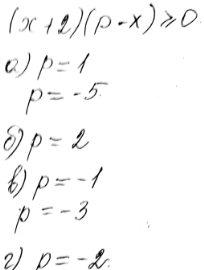 (x+2)(p-x)≥0
а) p=1
p=-5
б) p=2
в) p=-1
p=-3
г) p=-2